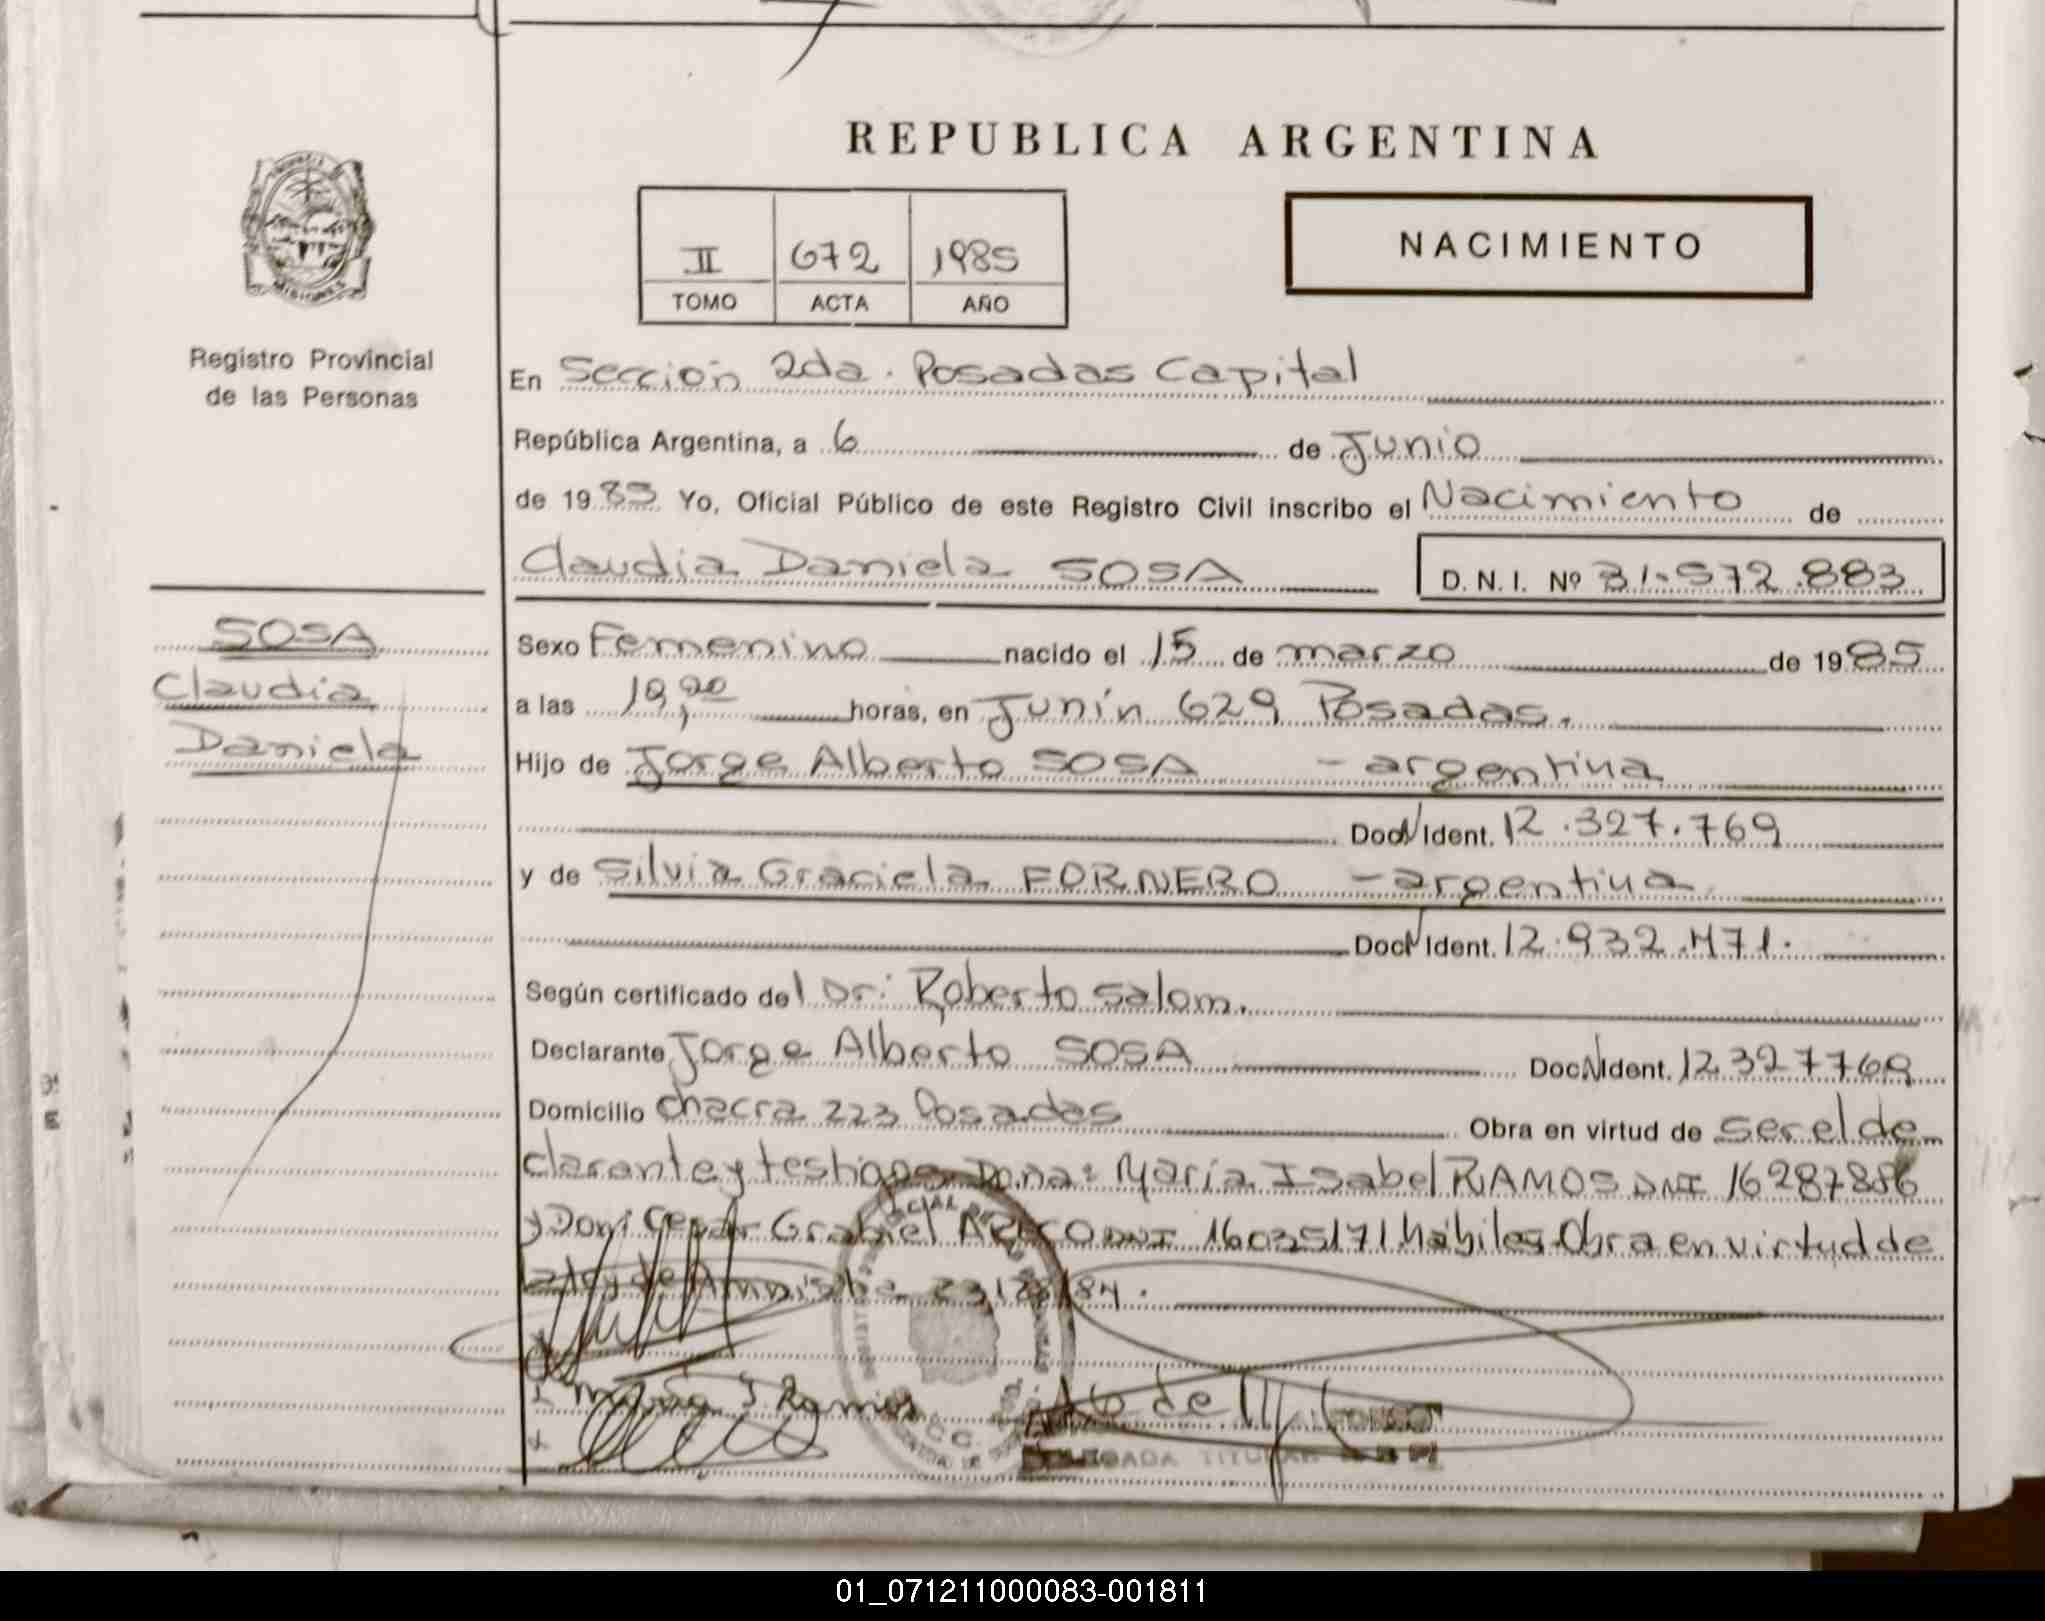 REPUBLICA ARGENTINA
II 672 1985
TOMO ACTA AÑO
NACIMIENTO
MISIONES
Registro Provincial
de las Personas
En Sección 2da. Posadas Capital
República Argentina, a 6 de Junio
de 1985 Yo, Oficial Público de este Registro Civil inscribo el Nacimiento de
Claudia Daniela SOSA D. N. I. Nº 31.572.883
SOSA
Claudia
Daniela
Sexo Femenino nacido el 15 de marzo de 1985
a las 19,20 horas, en Junín 629 Posadas.
Hijo de Jorge Alberto SOSA - argentina
Doc N Ident. 12.327.769
y de Silvia Graciela FORNERO - argentina
Doc N Ident. 12.932.471.
Según certificado del Dr: Roberto Salom.
Declarante Jorge Alberto SOSA Doc N Ident. 12327769
Domicilio chacra 223 Posadas Obra en virtud de ser el de
clarante y testigos Dona: María Isabel RAMOS DNI 16287886
y Don: Cesar Gabriel DNI 16035171 habiles Obra en virtud de
la ley de Amnistia 23128/84.
María I. Ramos
DELEGADA TITULAR
01_071211000083-001811